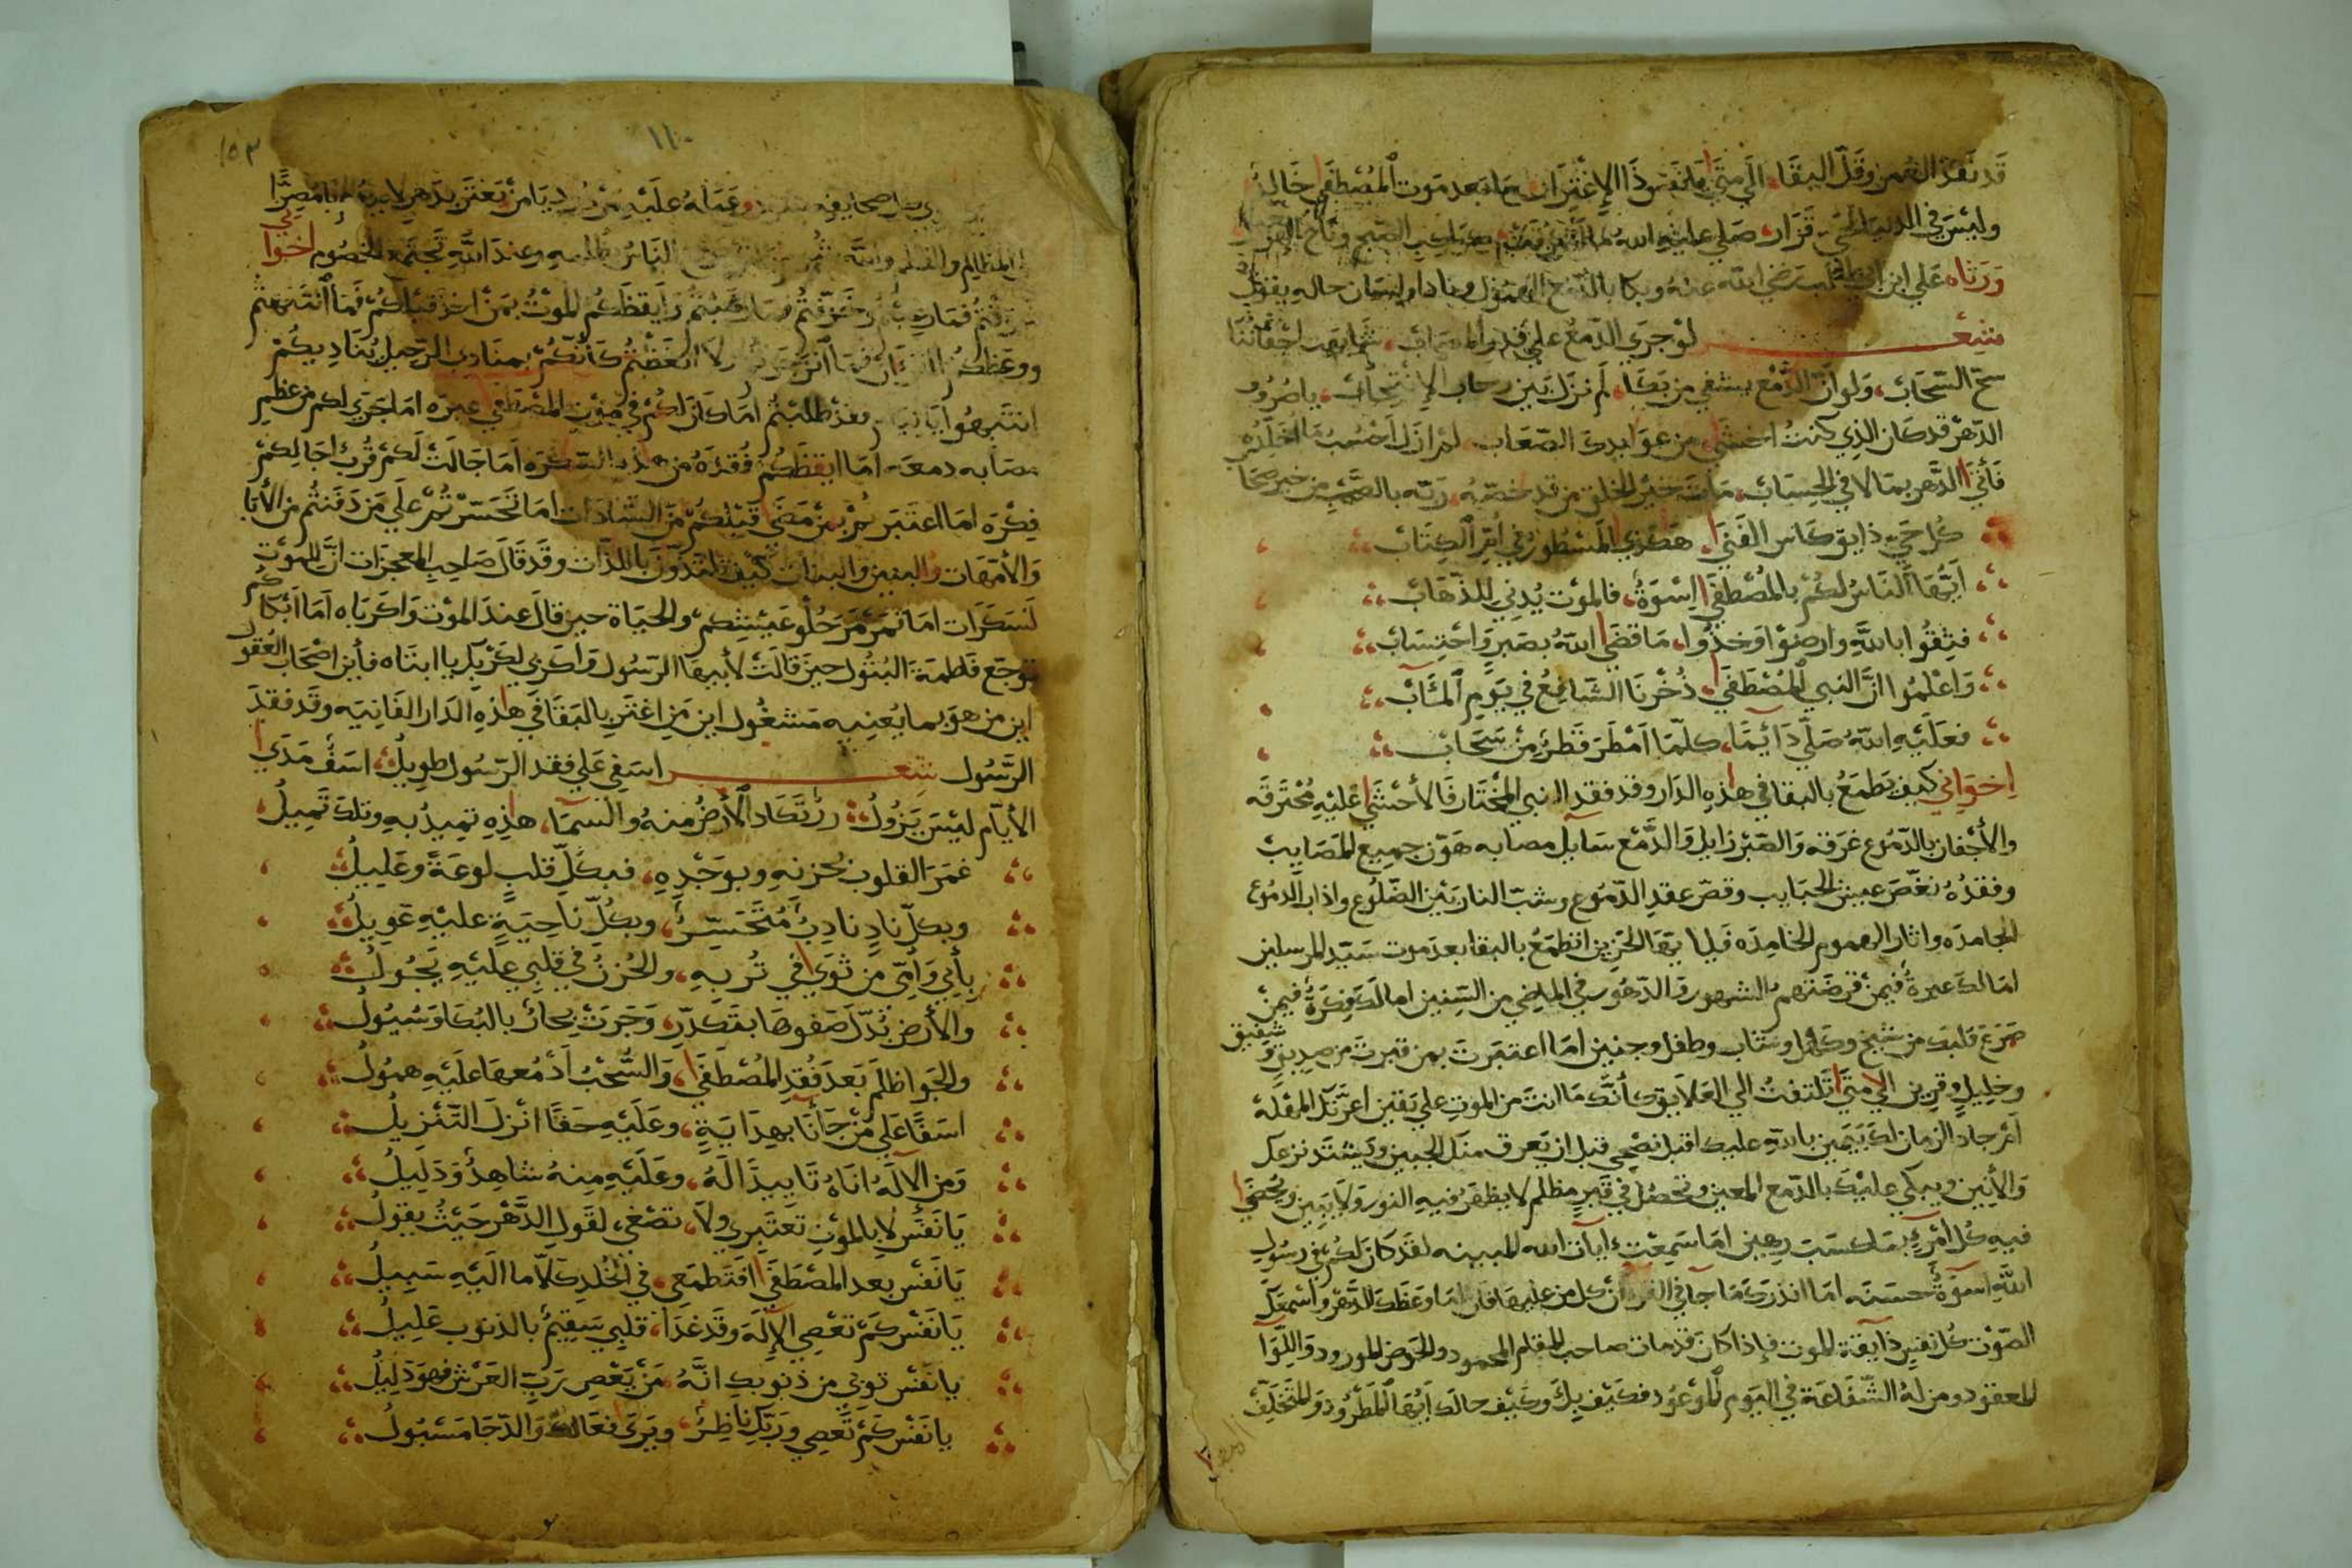 قَد نَفَدَ العُمر وَقَلَّ البقَا الَي مَتَي يَا نَفس ذَا الإغْتِرَار مَا بَعد مَوت المُصْطَفَي خَالِدٌ
وليْسَ في الدنيَا لحَيٍّ قَرَار صَلي عليْهِ اللهُ مَا الصّبح ونَاح
وَرَثاه عَلي ابن ابي طالب رَضي الله عنهُ وبكا بالدّمع الهمُول ونادا ولسَان حالهِ يقولُ
شِعْر لوْ جرَي الدّمعُ علي قدر المصَاب
سَحّ السّحَاب وَلو انّ الدَّمْع يشفي من بَكَا لَم نزَل بَين رحاب الإنتِحاب يا صُرُوف
الدّهرْ قد كان الذِي كنتُ اخشَي من عوَايدِك الصّعَاب لم ازل احسُبُ
فَأتي الدَّهر بمَا لا في الحِسَاب مَاتَ خيْر الخلق من قد خصّهُ رَبّه بالصَّحْبِ من خير صحَاب
كُل حَيٍّ ذايق كَاس الفَنَي هَكذي المَسْطورُ في امّ الكِتَاب
اَيُّهَا النَاسُ لكُم بالمُصْطَفَي اِسْوَةٌ فالموْت يُدنِي للذّهَاب
فثِقُوا باللَّهِ وارضَوْا وَخذُوا مَا قضَي اللهُ بصَبرٍ وَاحْتِسَاب
وَاعْلمُوا انَّ النَبي المُصْطَفَي ذُخْرنَا الشَافِعُ في يَوم المَـَٔاب
فعَلَيْهِ اللهُ صَلّي دَآيمًا كلمّا اَمْطَرَ قَطرٌ مِنْ سَحَاب
اِخوَاِني كيف نَطمَعُ بالبقا في هذهِ الدَار وقد فقد النبي المخْتَار فَالأحْشَي عليْهِ مُحْتَرقَه
والأجْفان بالدّمُوع غرَقه وَالصّبْر زايل وَالدَّمْع سَايل مصابه هَوّن جميع المَصَايب
وفقدُهُ نغّصَ عيش الحبَايب وقصّ عقد الدّمُوع وشبّ النار بَيْن الضّلُوع واذاب الدمُوع
الجامدَه واثار الهموم الخامِدَه فَيا ايهَا الحَزِين اتطمَعُ بالبقا بعدَ موت سَيّد المرسلين
امَا لك عبرَةٌ فيمنْ قرضَتهم الشهور وَالدّهُور في الماضي من السّنِين امَا لكَ فِكرَةٌ فيمنْ
صَرَعَ قلبك من شيخ وكَهْل وشَاب وطفل وجنين امَا اعتبَرتَ بمن قبرت من صدِيق وَشفيق
وخلِيلٍ وقرِين الَي مَتَي تلتفتُ الي العَلَايق كأنَّك مَا انتَ من الموتِ علي يَقين اغرَّتك المهْلَه
اَمْ جاد الزمان لكَ بيَمين باللَّهِ عليك اقبل نصْحي قبل ان يَعرق منك الجبين وَيشْتَد نزعك
وَالأنين ويبكي عليْكَ بالدّمع المعين وتحصُل في قَبرٍ مظلم لا يظهَرُ فيهِ النور وَلا يَبين ويُحصَي
فيهِ كُل امْرءٍ بمَا كسَبَت رهين امَا سَمِعْتَ ايات الله المبينه لقَد كَان لكُم في رسُول
اللّهِ اسْوَةٌ حَسَنَه امَا انذرَكَ مَا جآ في القرآن كل من عليهَا فان امَا وَعَظكَ الدّهْر واسْمَعَك
الصّوْت كل نفسٍ ذآيقة الموت فإذا كان قد مات صاحب المقام المحمود والحَوض المورود وَاللِّوَآ
المعقود ومن لهُ الشّفَاعَة في اليَوم المَوْعُود فكَيْف بِكَ وكَيْف حالك اَيّهَا المَطرُود وَالمتخَلّف
١٥٣
١١٠
وعَمَلهُ عَلَيْهِ يَا منْ يَغتَرّ بدَهرِ
المظالِم وَاللَّه النّاسُ وعندَ اللَّهِ تجتَمِعُ الخصُوم اخوَاِني
وخُوّفتُم فمَا رهَبْتُم وَايقظَكُم الموْتُ بمَنْ اخذَ قبلكُمْ فَمَا انْتَبَهْتُم
ووعَظَكُم القرآن فَمَا انزَجَرتم ولا اتّعَظْتُمْ كَأنّكُمْ بمنَادي الرّحِيل يُنَادِيكُمْ
انتَبِهُوا فقدْ طلبْتُم امَا كَانَ لكُمْ في مَوْتِ المُصْطَفَي عِبرَه امَا جَرَي لكم من عظم
مصَابه دمعَه اَمَا ايْقظَكُم فُقْدُهُ من هذِه السّكرَه اَمَا جَالَتْ لكمْ قُربُ اجَالِكمْ
فِكْرَه امَا اعتَبَرتُمْ بمَنْ مَضَي قَبْلكُمْ منَ السَّادَات امَا تحَسّرْتُمْ عَلَي مَن دَفَنتُم من الأبَا
وَالأمّهَات والبنين وَالبنَات كَيْف تلتذّونَ باللذّات وقَد قَالَ صَاحِب المعجزَات انَّ للمَوْت
لَسَكَرَات امَا تمَرْمَرَ حُلْو عَيْشِكُمْ وَالحيَاة حين قالَ عندَ الموْت وَاكَرباه اَمَا اَبْكَاكُم
توجّع فَاطِمَة البُتُول حينَ قَالَتْ لأبيهَا الرّسُول وَاكَربي لكَرْبِك يا ابتَاه فأينَ اصْحَاب العُقول
اين من هوَ بما يُعنيه مَشغُول اين مَن اغتَر بالبَقَا في هذِهِ الدَار الفَانِيَه وقَد فقدَ
الرَّسُول شِعْر اسَفِي عَلي فقد الرّسُول طوِيلُ اسَفٌ مَدَي
الأيّام ليْسَ يَزُولُ رزْ تَكَاد الأرْضُ منهُ والسّمَآ هذِهِ تمِيدُ بهِ وتلكَ تَمِيلُ
غمَرَ القلوب بحُزنهِ وبوَجْدِهِ فبكلّ قلبٍ لوعَةٌ وغَلِيلُ
وبكلّ نادٍ نادِبٌ مُتَحَسِّرٌ وبكُلّ ناحِيَةٍ عليْهِ عَوِيلُ
بأبِي وَاُمّي مَن ثوَي في تُربهِ والحُزنُ في قلبي عليْهِ يَجُولُ
والأرض بُدّل صَفوهَا بتَكدّرٍ وَجَرَتْ بحَارٌ بالبُكَا وَسُيُولُ
والجَو اظلَم بَعدَ فُقدِ المُصْطفَي وَالسُّحْبُ اَدْمُعهَا عَلَيْهِ همُولُ
اسَفًا علي مَنْ جَآنَا بهدَايَةٍ وعَلَيْهِ حَقّا انزل التّنْزيلُ
وَمن الآلَهُ اتَاهُ تَاييدًا لَهُ وعَلَيْهِ مِنهُ شاهِدٌ وَدَلِيلُ
يَا نَفسُ لا بالموْتِ تَعتَبري ولا تصْغي لقَول الدَّهْر حَيْثُ يقولُ
يَا نَفْس بعد المصْطَفَي افتَطمَعي في الخُلدِ كَلّا ما الَيْهِ سَبِيلُ
يَا نَفسْ كَمْ تعْصِي الإلهَ وقَد غدَا قلبِي سَقِيمٌ بالذنوب عَلِيلُ
يا نَفسْ توبي من ذنوبك انَّهُ مَنْ يَعْصِ رَبّ العَرْشِ فهوَ ذلِيلُ
يا نَفْس كَمْ تَعصِي ورَبّكِ ناظِرٌ ويَرَي فعَالك وَالدّجَا مَسْبُولُ